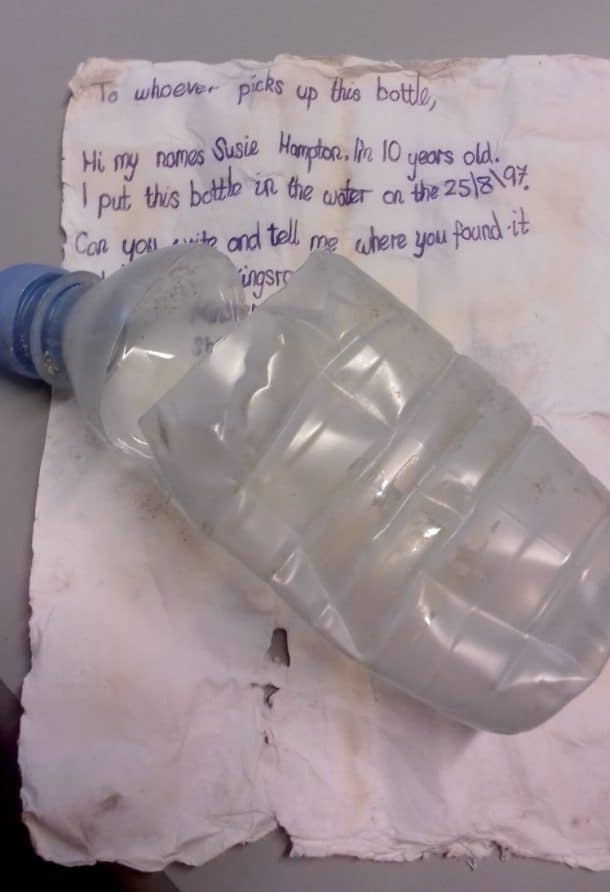 To whoever picks up this bottle,
Hi my names Susie Hampton. I'm 10 years old.
I put this bottle in the water on the 25/8\97.
Can you and tell me where you found it